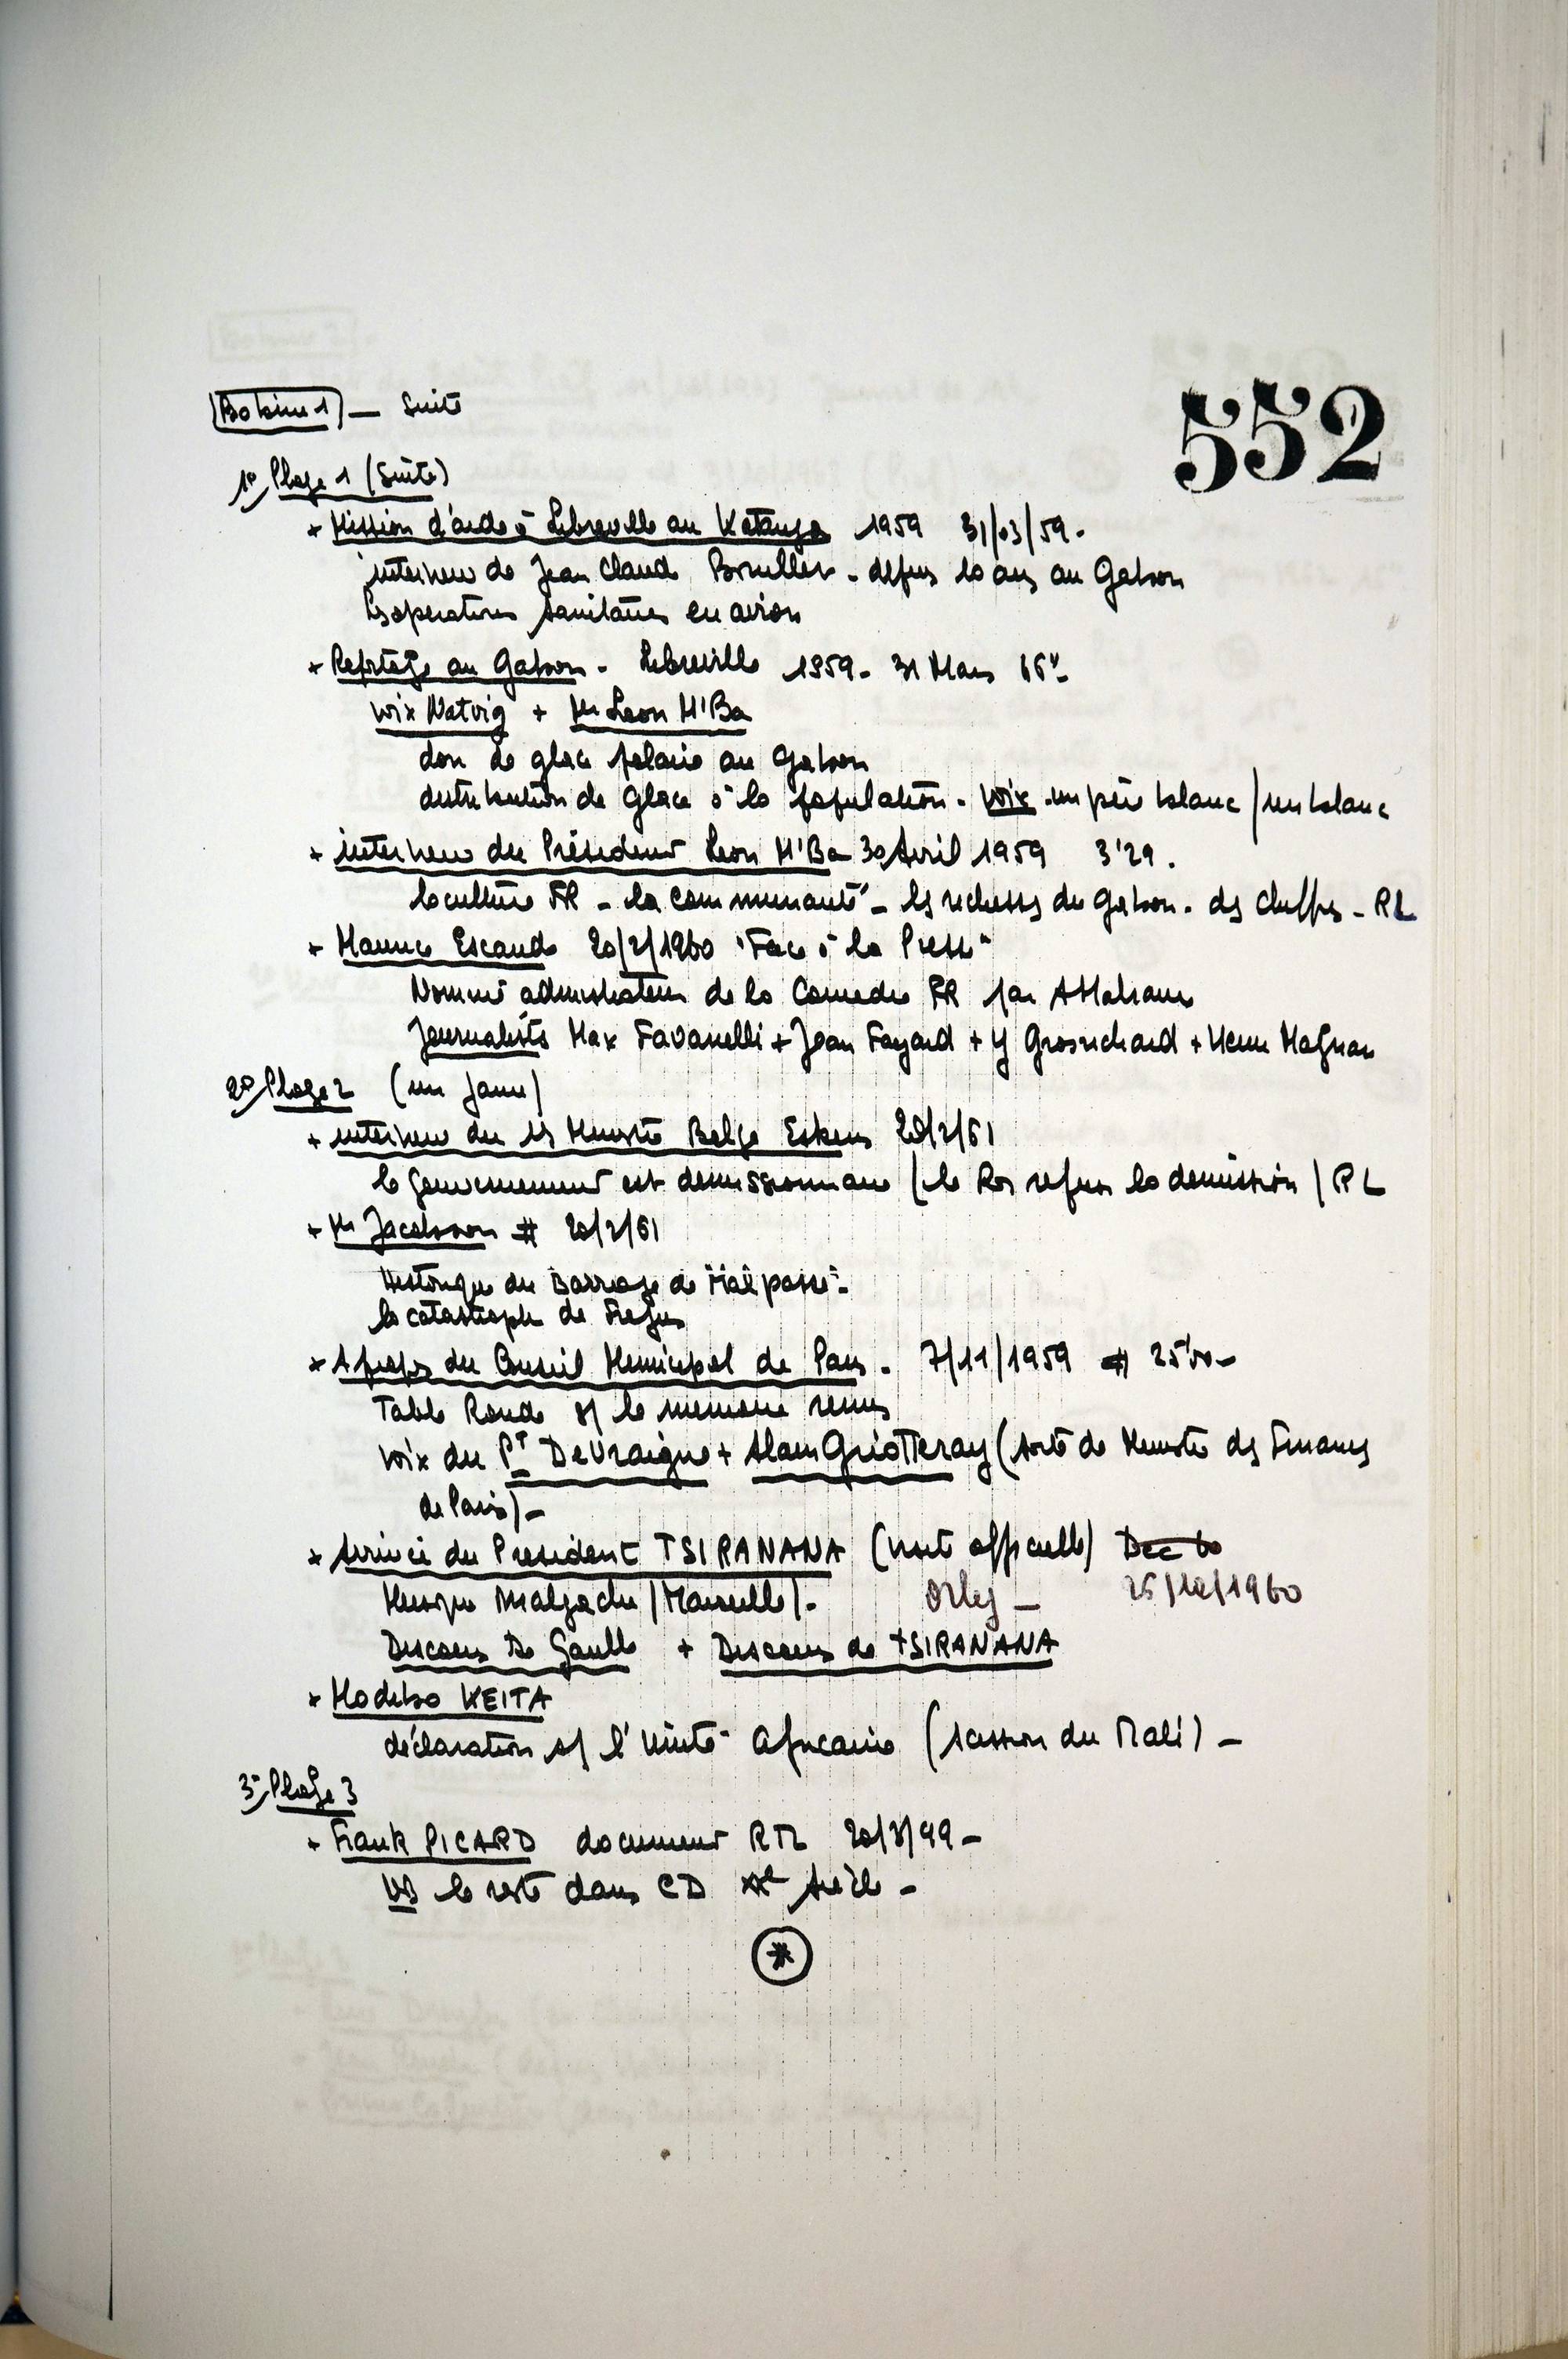 Bobine 1 — Suite
552
1° Plage 1 (Suite)
+ Mission d'aide à Libreville au Katanga 1959 31/03/59.
interview de Jean Claude Brouillet - depuis 10 ans au Gabon
Les operations sanitaires en avion
+ Reportage au Gabon - Libreville 1959 - 31 Mars
voix + Mr Leon M'Ba
don de glace polaire au Gabon
distribution de glace à la population - voix - un père blanc / un blanc
+ interview du Président Leon M'Ba 30 Avril 1959 3'29.
la culture FR - la communauté - les richesses du Gabon - des chiffres - RL
+ Maurice Escande 20/2/1960 "Face à la Presse"
Nommé administrateur de la Comedie FR par A Malraux
Journalistes Max Favalelli + Jean Fayard + Y Grosrichard + Henri Magnan
2° Plage 2 (un jaune)
+ interview du 1er Ministre Belge Eskens 20/2/61
le gouvernement est demissionnaire (le Roi refuse la demission) RL
+ Mr Jacobson # 20/2/61
Historique du Barrage de "Malpasset"
la catastrophe de Frejus
+ A propos du Conseil Municipal de Paris - 7/11/1959 # 25'00 -
Table Ronde s/ le
voix du Pt Devraigne + Alain Griotteray (sorte de Ministre des Finances
de Paris) -
+ Arrivée du President TSIRANANA (visite officielle) Dec 60
Musique Malgache (Marseille). Orly - 25/10/1960
Discours De Gaulle + Discours de TSIRANANA
+ Modibo KEITA
déclaration s/ l'Unité Africaine (scission du Mali) -
3° Plage 3
+ Frank PICARD document RTL 20/3/99 -
le reste dans CD XXe siècle -